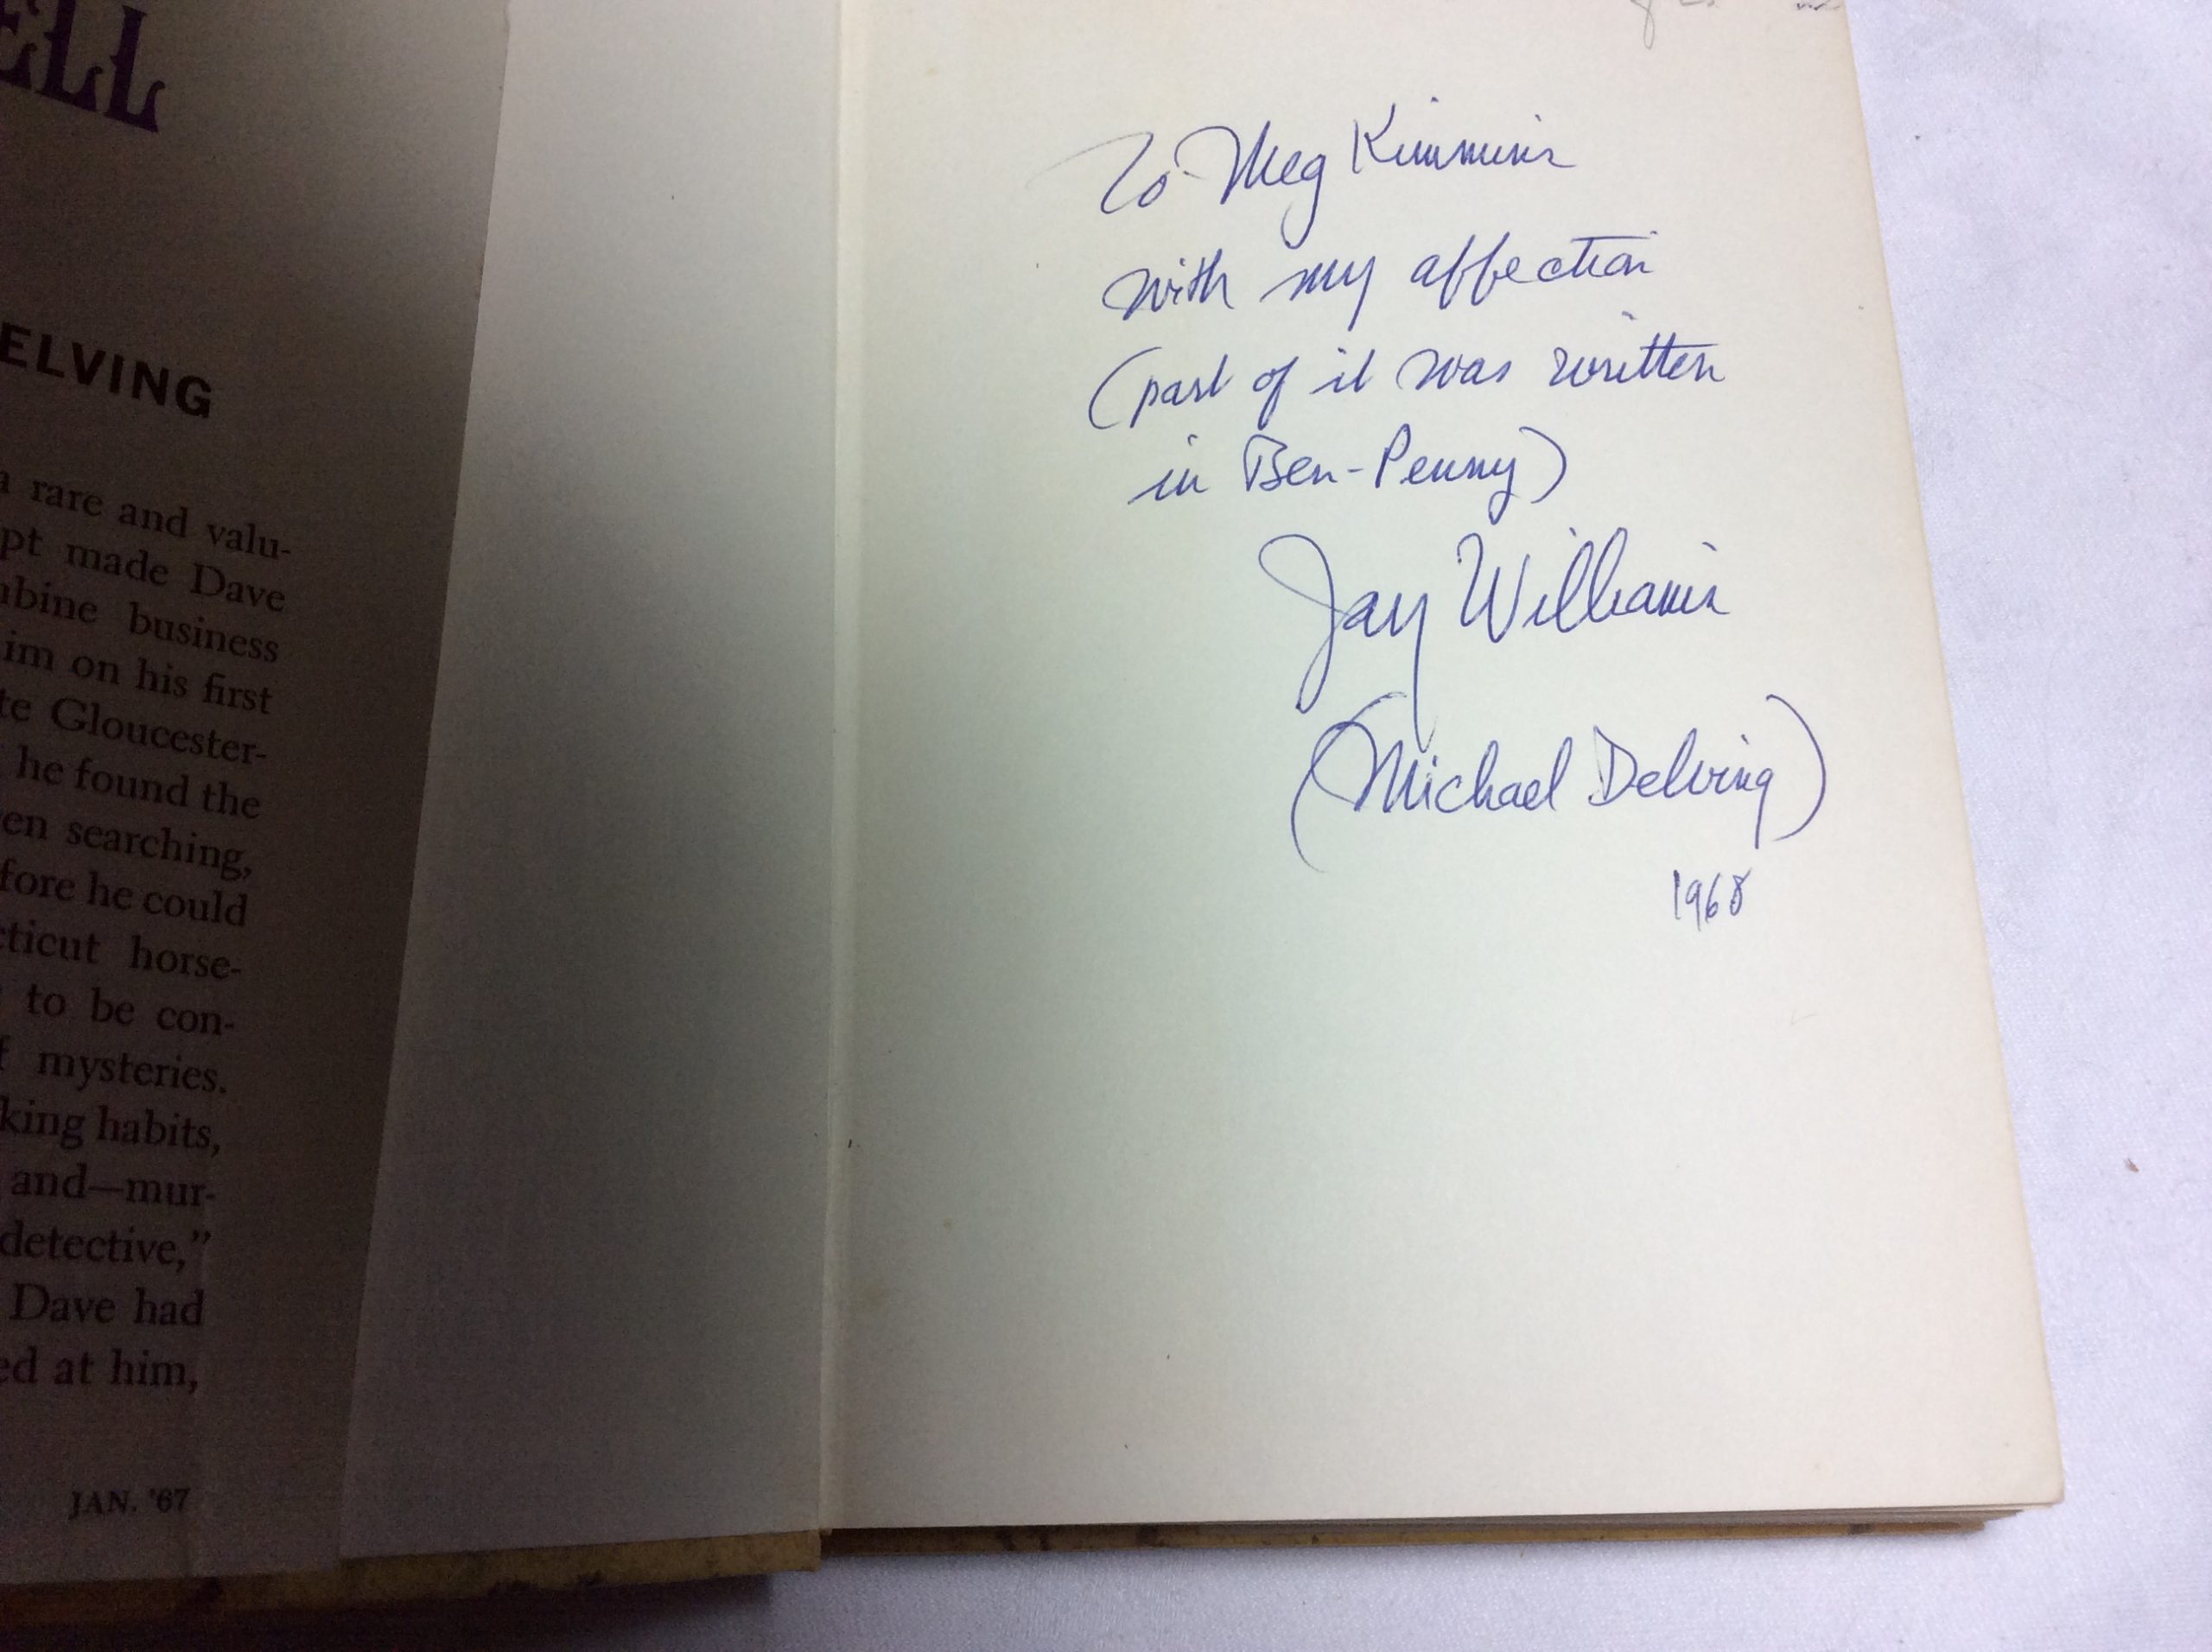 ELL
ELVING
a rare and valu-
pt made Dave
bine business
im on his first
te Gloucester-
he found the
en searching,
fore he could
cticut horse-
to be con-
f mysteries.
king habits,
and—mur-
detective,”
Dave had
ed at him,
JAN. '67
To Meg Kimmins
with my affection
(part of it was written
in Ben-Penny)
Jay Williams
(Michael Delving)
1968